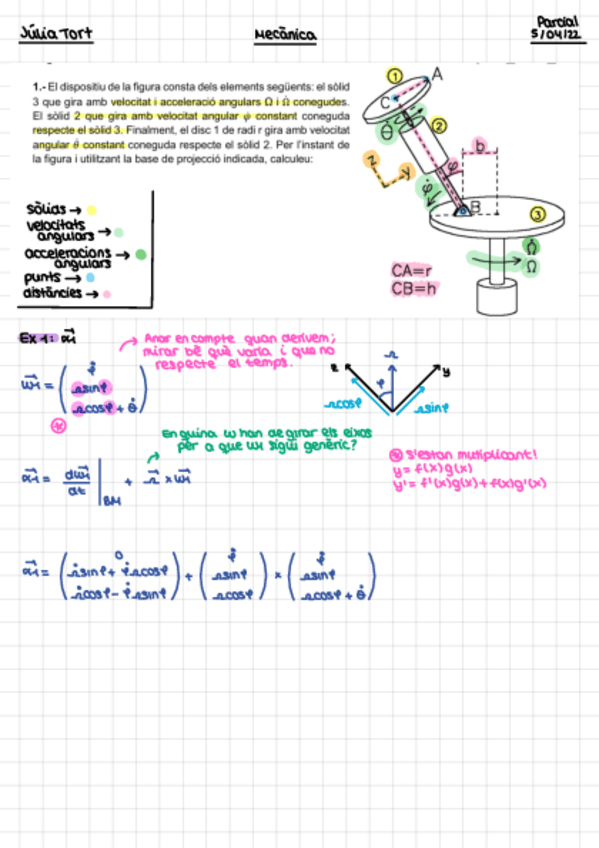 Júlia Tort
Mecànica
Parcial
5/04/22
1.- El dispositiu de la figura consta dels elements següents: el sòlid
3 que gira amb velocitat i acceleració angulars Ω i Ω̇ conegudes.
El sòlid 2 que gira amb velocitat angular φ̇ constant coneguda
respecte el sòlid 3. Finalment, el disc 1 de radi r gira amb velocitat
angular θ̇ constant coneguda respecte el sòlid 2. Per l'instant de
la figura i utilitzant la base de projecció indicada, calculeu:
1
A
C
θ̇
2
b
z
y
φ
φ̇
B
3
Ω̇
Ω
CA=r
CB=h
sòlids →
velocitats
angulars →
acceleracions
angulars →
punts →
distàncies →
Ex 1: α⃗1
Anar en compte quan derivem;
mirar bé què varia i que no
respecte el temps.
ω⃗1 = ( φ̇
Ωsinφ
Ωcosφ + θ̇ )
z
Ω
y
φ
Ωcosφ
Ωsinφ
En quina ω han de girar els eixos
per a que ω1 sigui genèric?
α⃗1 = dω⃗1/dt |BM + Ω⃗ × ω⃗1
* S'estan multiplicant!
y = f(x)g(x)
y' = f'(x)g(x) + f(x)g'(x)
α⃗1 = ( 0
Ω̇sinφ + φ̇Ωcosφ
Ω̇cosφ - φ̇Ωsinφ ) + ( φ̇
Ωsinφ
Ωcosφ ) × ( φ̇
Ωsinφ
Ωcosφ + θ̇ )